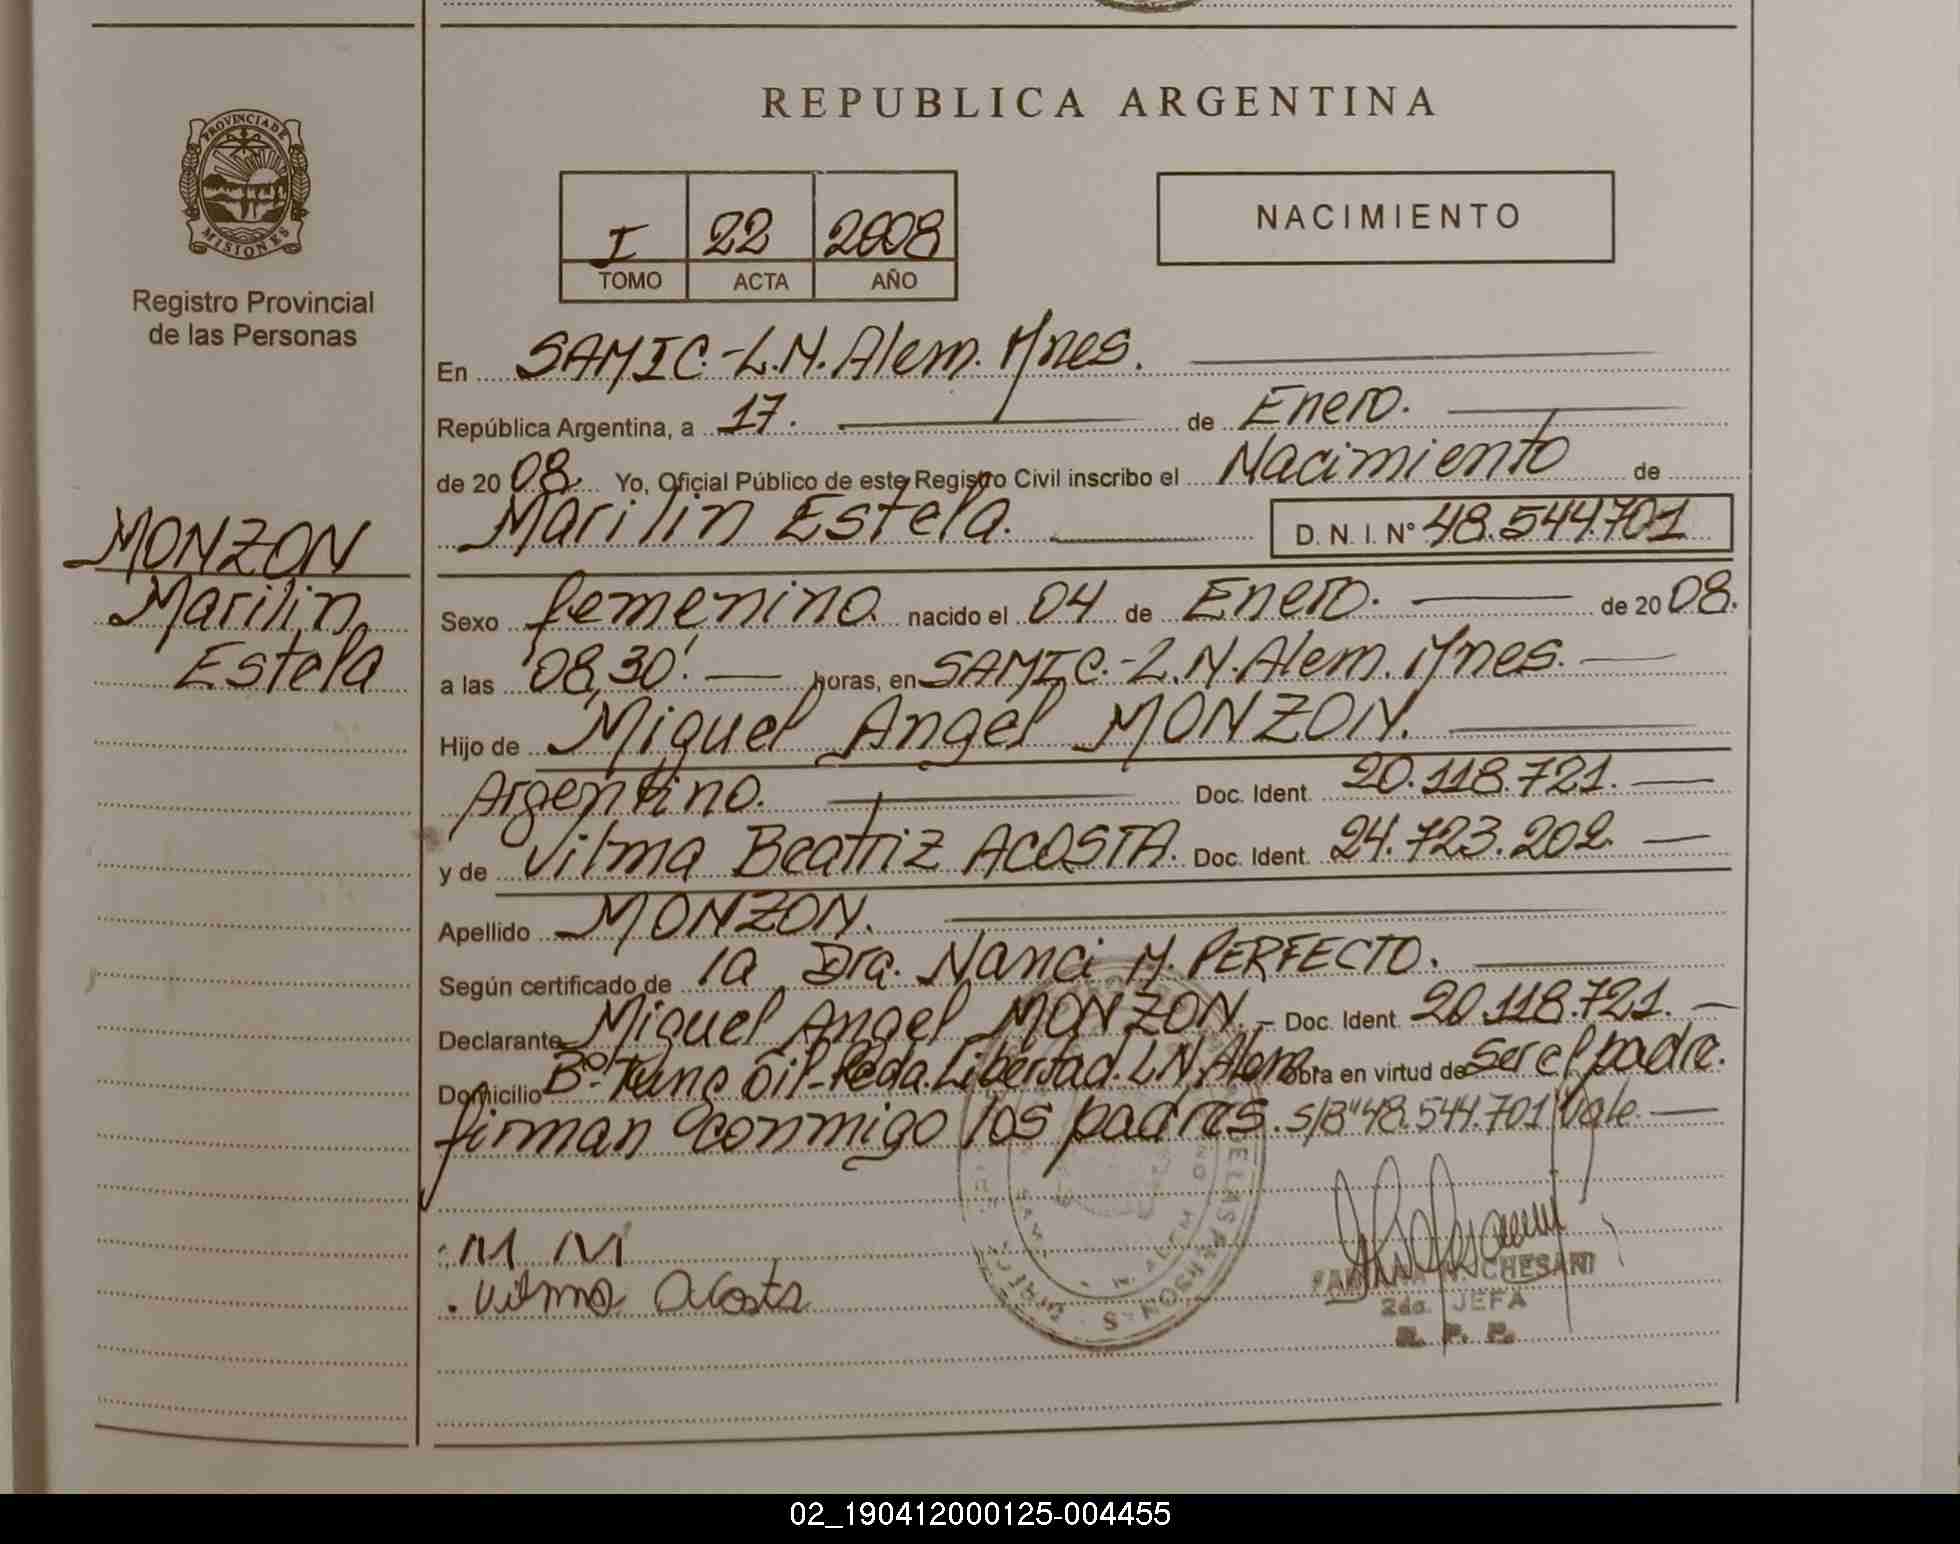 REPUBLICA ARGENTINA
PROVINCIA DE MISIONES
Registro Provincial
de las Personas
I 22 2008
TOMO ACTA AÑO
NACIMIENTO
En SAMIC.-L.N.Alem. Mnes.
República Argentina, a 17. de Enero.
de 2008. Yo, Oficial Público de este Registro Civil inscribo el Nacimiento de
Marilin Estela. D. N. I. Nº 48.544.701
MONZON
Marilin
Estela
Sexo femenino. nacido el 04 de Enero. de 2008.
a las 08,30'. horas, en SAMIC.-L.N.Alem. Mnes.
Hijo de Miguel Angel MONZON.
Argentino. Doc. Ident. 20.118.721.
y de Vilma Beatriz ACOSTA. Doc. Ident. 24.723.202.
Apellido MONZON.
Según certificado de la Dra. Nanci M. PERFECTO.
Declarante Miguel Angel MONZON.- Doc. Ident. 20.118.721.-
Domicilio Bº. Tung Oil-Pcda. Libertad. L N. Alem. obra en virtud de ser el padre.
firman conmigo los padres. S/B"48.544.701"Vale.
M M
Vilma Acosta
CHESANI
2da. JEFA
R. P. P.
02_190412000125-004455